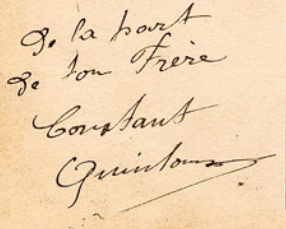 de la part
de ton Frère
Constant